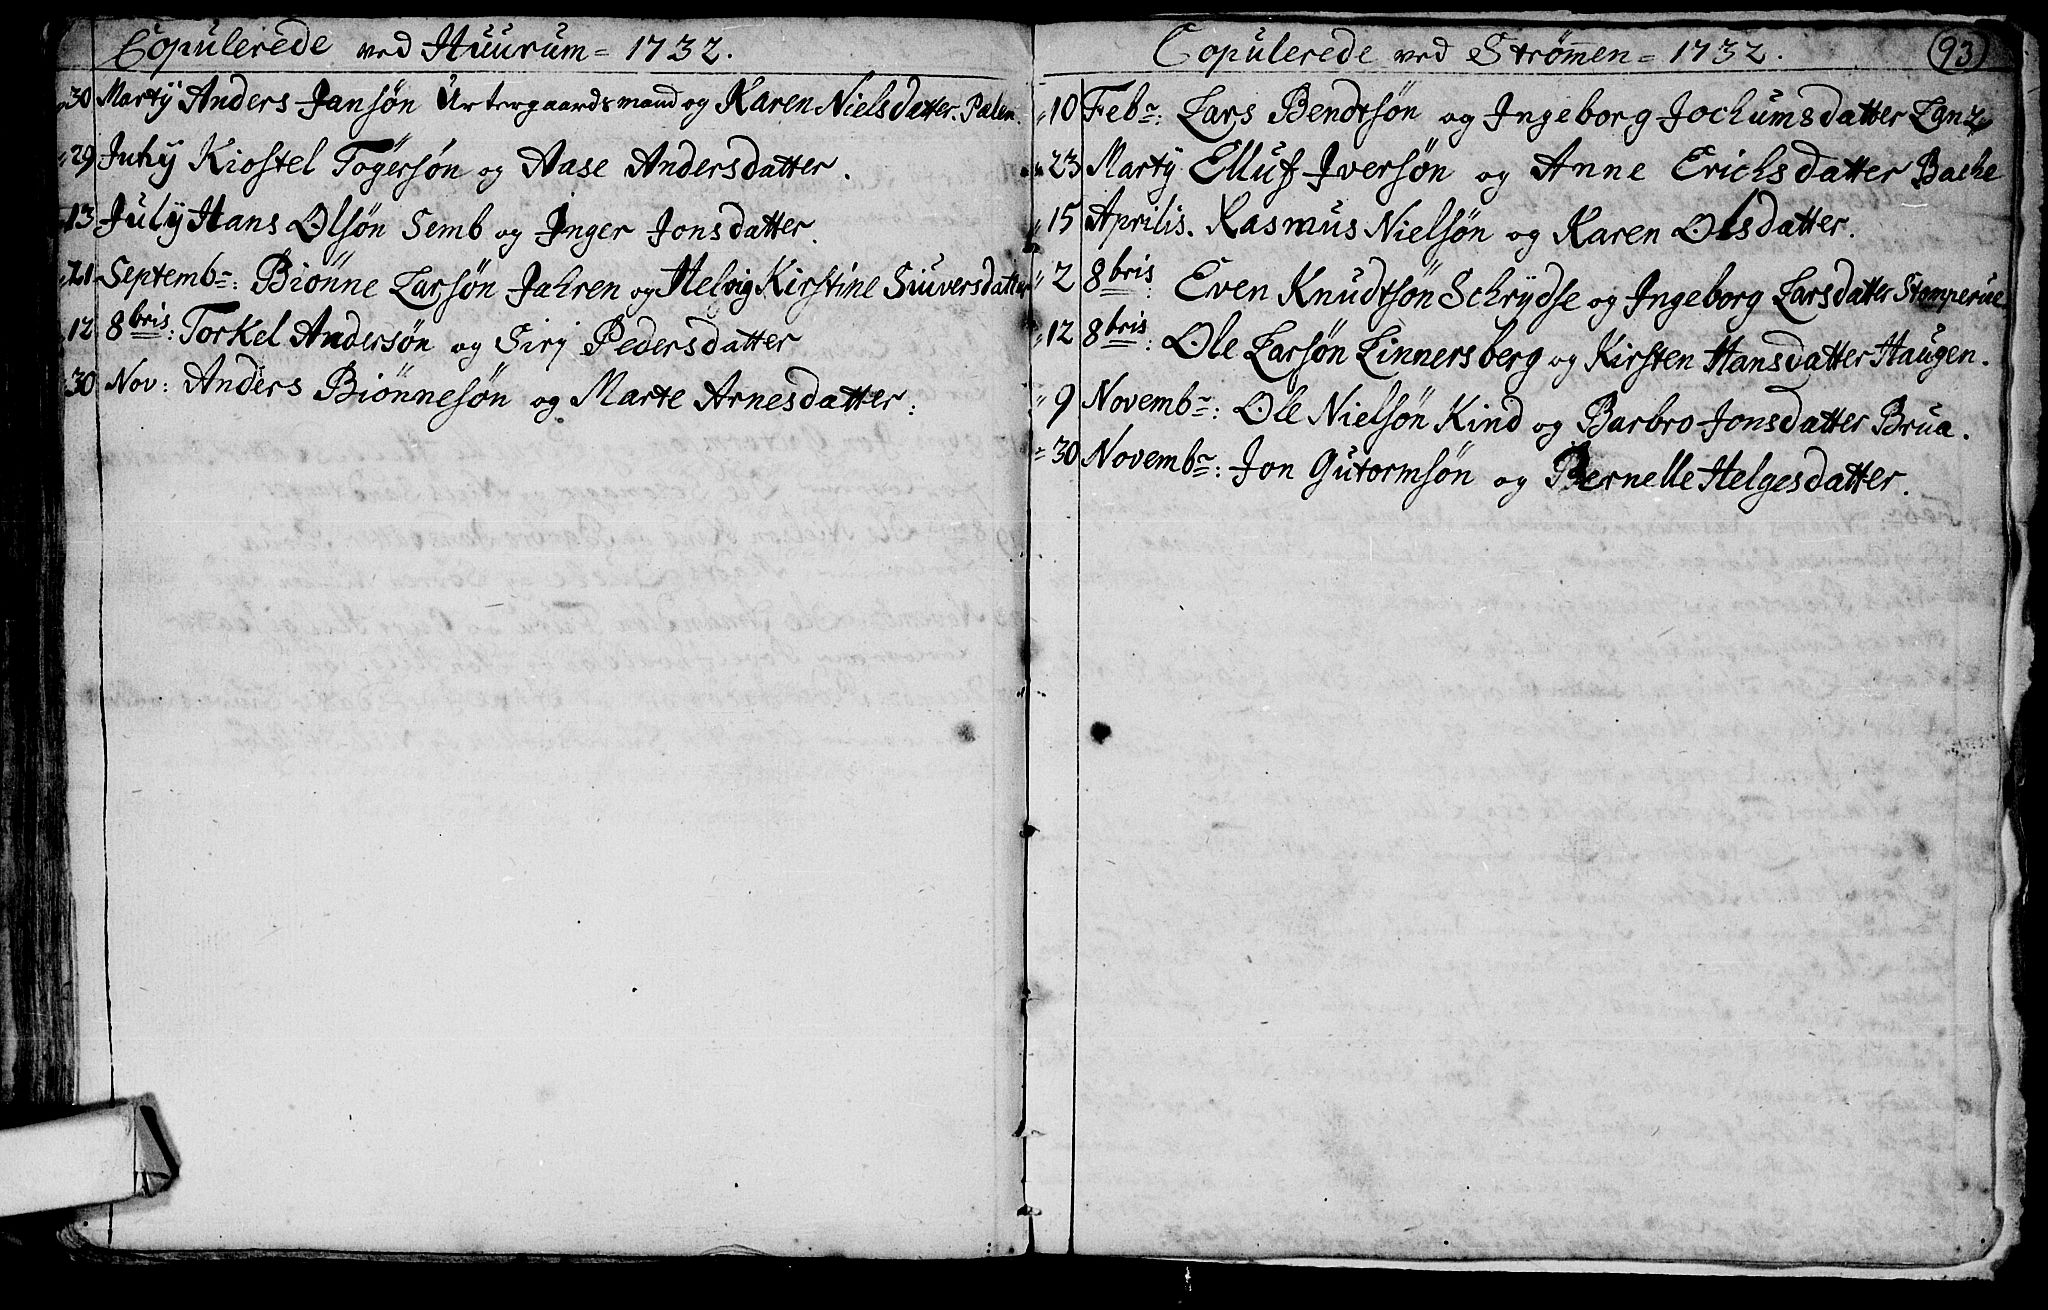 Copulerede ved Huurum = 1732.
30 Martÿ Anders Jansøn Urtergaardsmand og Karen Nielsdatter. Palen.
29 Junÿ Kiostel Togersøn og Aase Andersdatter.
13 July Hans Olsøn Semb og Inger Jonsdatter.
21 Septembr: Biönne Larsøn Jahren og Helvig Kirstine Siuversdatter
12 8bris: Torkel Andersøn og Sirj Pedersdatter
30 Nov: Anders Biönnesøn og Marte Arnesdatter:
Copulerede ved Strømen = 1732.
93
10 Febr: Lars Bendtsøn og Ingeborg Jochumsdatter Lanz
23 Martÿ Elluf Iversøn og Anne Erichsdatter Bache
15 Aprilis. Rasmus Nielsøn og Karen Olsdatter.
2 8bris: Even Knudtsøn Schrydse og Ingeborg Larsdatter Stomperue
12 8bris: Ole Larsøn Linnersberg og Kirsten Hansdatter Haugen.
9 Novembr: Ole Nielsøn Kind og Barbro Jonsdatter Brua.
30 Novembr: Jon Gutormsøn og Pernelle Helgesdatter.